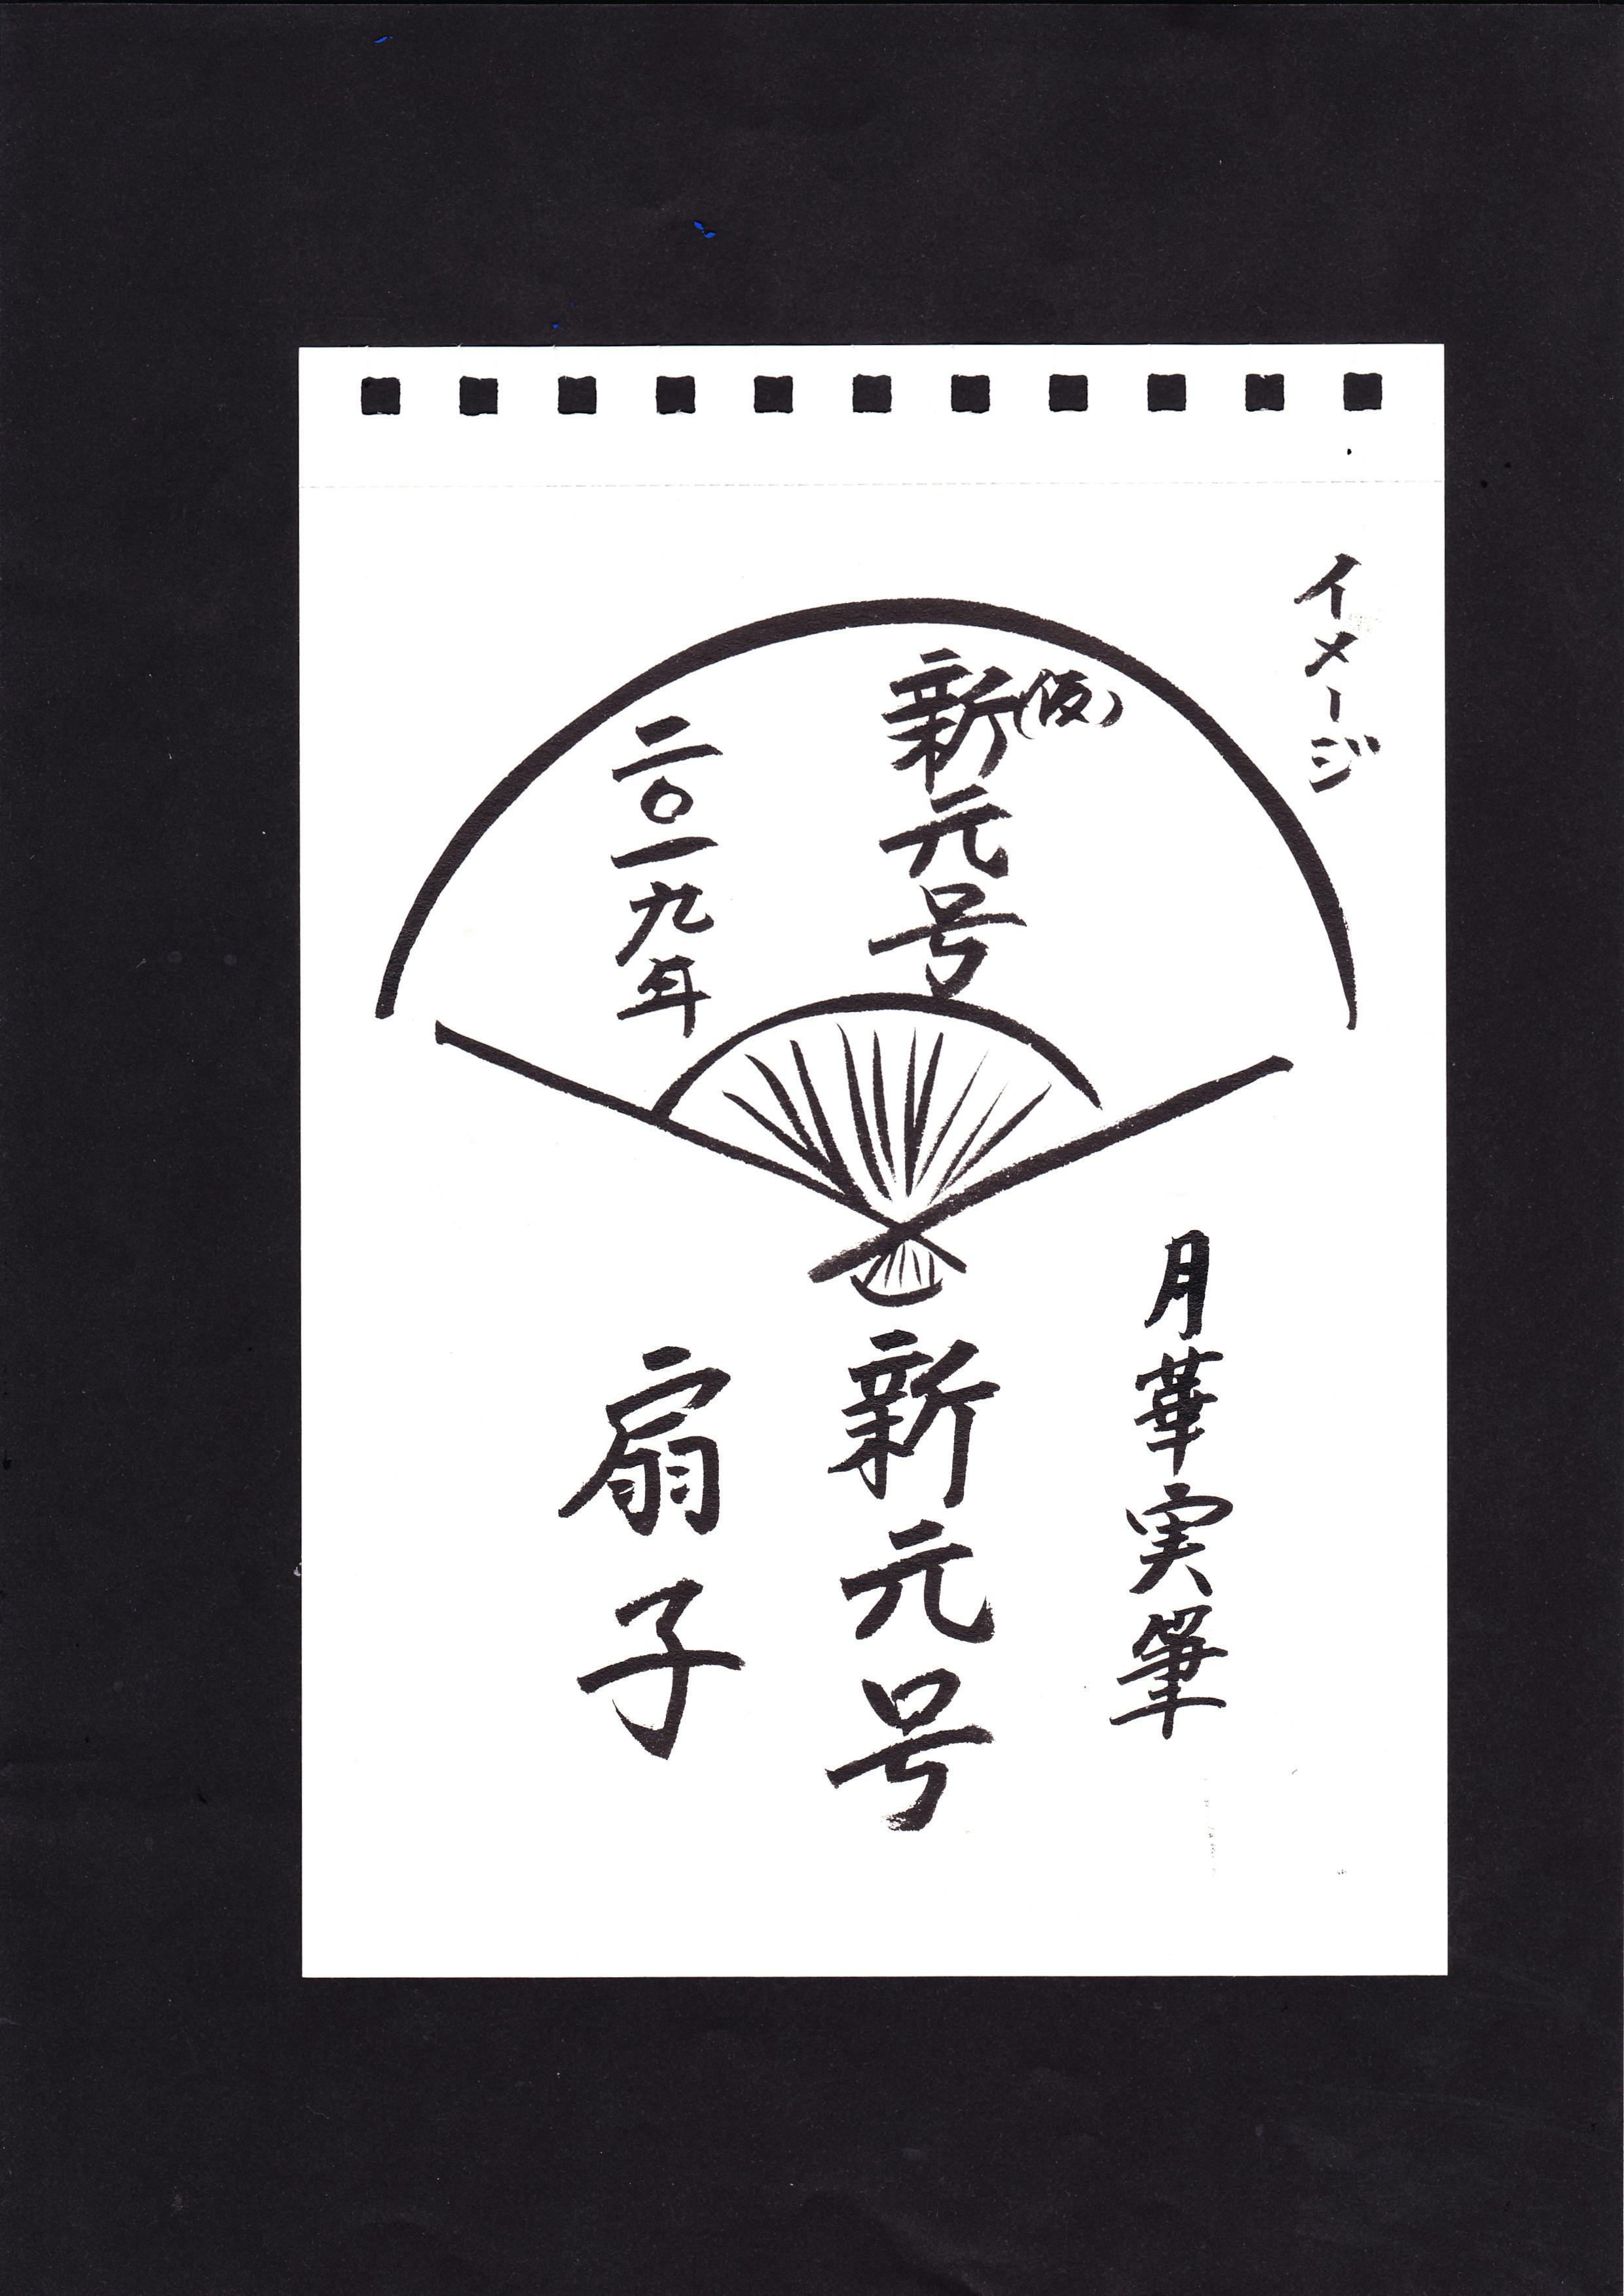 イメージ
(仮)
新元号
二〇一九年
月華実筆
新元号
扇子